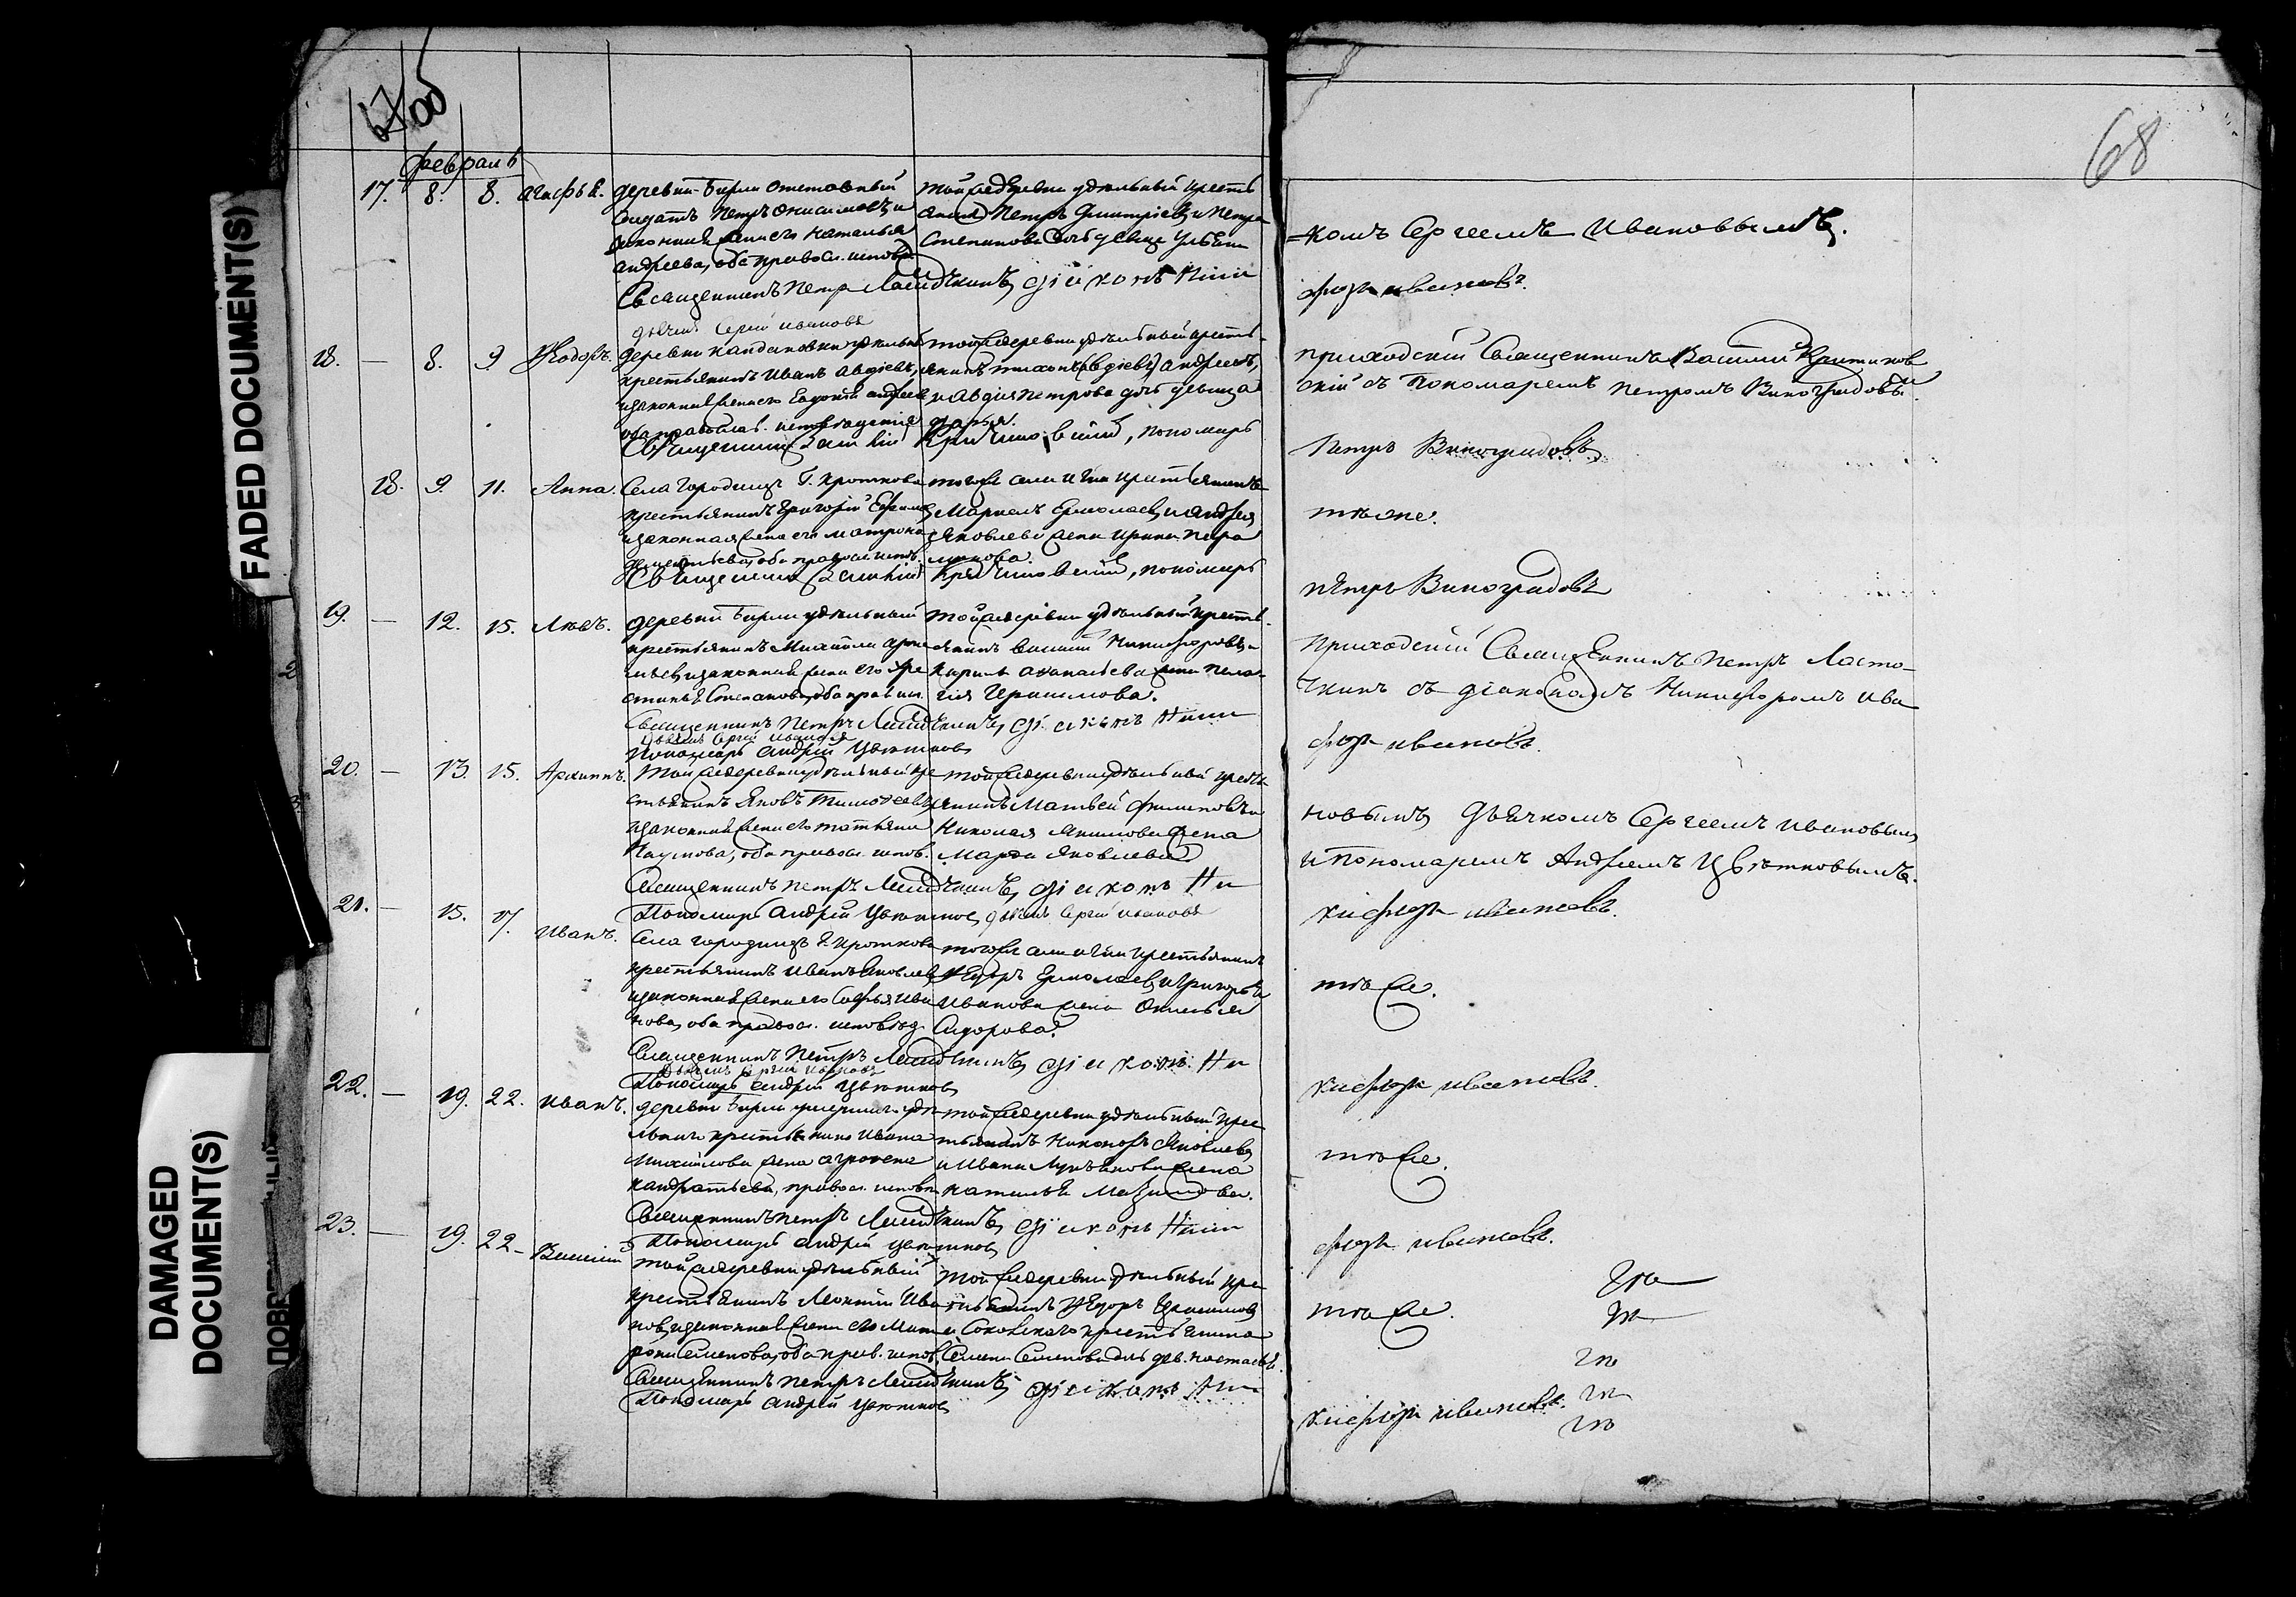 67 об
68
февраль
17. 8. 8. Агафья. деревни Бирли отставный
солдатъ Петръ Онисимовъ и
законная жена его Наталья
Андреева, оба правосл. испов.
той же деревни удѣльный кресть
янинъ Петръ Дмитріевъ и Петра
Степанова дочь девица Ульяна
-комъ Сергеемъ Ивановымъ.
Священникъ Петръ Ласточкинъ, діаконъ Ники
форъ Ивановъ.
дьячекъ Сергій Ивановъ
18. — 8. 9 Ѳеодоръ. деревни Кайдановки удѣльный
крестьянинъ Иванъ Авдіевъ,
и законная жена его Евдокія Андреева
оба православ. исповѣданія
той же деревни удѣльный кресть
янинъ Тихонъ (Авдіевъ) Андреевъ,
и Авдія Петрова дочь девица
Дарья.
приходскій Священникъ Василій
скій съ Пономаремъ Петромъ Виноградовы
Священникъ Василій пономарь
Петръ Виноградовъ
18. 9. 11. Анна. Села Городищъ Г. Кроткова
крестьянинъ Григорій Ефимовъ
и законная жена его Матрона
оба правосл. испов.
того же села и Гна крестьянинъ
Маркелъ Ермолаевъ и Андрея
Яковлева жена Ирина Пара
монова.
тѣже.
Священникъ Василій пономарь
Пѣтръ Виноградовъ
19. — 12. 15. Левъ. деревни Бирли удѣльный
крестьянинъ Михайла
и законная жена его
Степанова, оба правосл.
той же деревни удѣльный кресть
янинъ Василій Никифоровъ и
Кирила Аѳанасьева жена Пела
гия Герасимова.
Приходскій Священникъ Петръ Ласто-
чкинъ съ діакономъ Никифоромъ Ива
Священникъ Петръ Ласточкинъ, діаконъ Ники
форъ Ивановъ.
дьячекъ Сергій Ивановъ
Пономарь Андрей Цвѣтковъ
20. — 13. 15. Архиппъ. Той же деревни удѣльный кре
стьянинъ Яковъ Тимоѳеевъ
и законная жена его Татьяна
Наумова, оба правосл. испов.
той же деревни удѣльный кресть
янинъ Матвей Филиповъ и
Николая Якимова жена
Марѳа Яковлева
новымъ, Дьячкомъ Сергеемъ Ивановым
и пономаремъ Андреемъ Цвѣтковымъ.
Священникъ Петръ Ласточкинъ, діаконъ Ни
кифоръ Ивановъ.
Пономарь Андрей Цвѣтковъ, дьячекъ Сергій Ивановъ
21. — 15. 17. Иванъ. Села Городищъ Г. Кроткова
крестьянинъ Иванъ Яковлевъ
и законная жена его Софья Ива
нова, оба правосл. исповѣд.
того же села и Гна крестьянинъ
Ѳедоръ Ермолаевъ и Григорья
Иванова жена
Сидорова.
тѣ же.
Священникъ Петръ Ласточкинъ, діаконъ Ни
кифоръ Ивановъ.
дьячекъ Сергій Ивановъ
Пономарь Андрей Цвѣтковъ
22. — 19. 22. Иванъ. деревни Бирли умершаго удѣ
льнаго крестьянина Ивана
Михайлова жена Агрофена
Кандратьева, правосл. испов.
той же деревни удѣльный крес
тьянинъ Никаноръ Яковлевъ
и Ивана Лукьянова жена
Наталья Максимова.
тѣ же.
Священникъ Петръ Ласточкинъ, діаконъ Ники
форъ Ивановъ.
Пономарь Андрей Цвѣтковъ
23. — 19. 22. Василій той же деревни удѣльный
крестьянинъ Леонтій Ива
новъ, и законная жена его Мат
рона Семенова, оба прав. испов.
той же деревни удѣльный кре
стьянинъ Ѳедоръ Герасимовъ
и Соковскаго крестьянина
Семена Семенова дочь дев. Настасья.
тѣ же.
Священникъ Петръ Ласточкинъ, діаконъ Ни
кифоръ Ивановъ.
Пономарь Андрей Цвѣтковъ
FADED DOCUMENT(S)
DAMAGED
DOCUMENT(S)